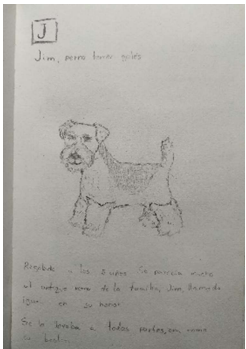 J
Jim, perro terrier galés
Regalado a los 8 años le parecía mucho
al antiguo terrier de la familia, Jim, llamado
igual en su honor
Se lo llevaba a todas partes, era como
su